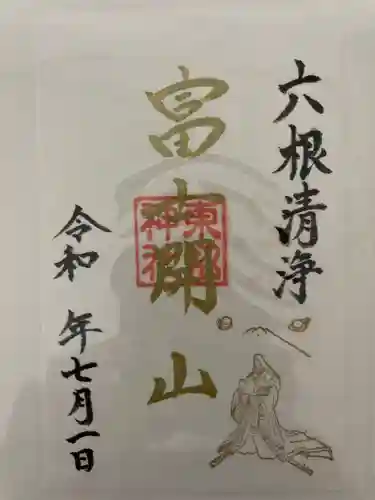 六根清浄
富士開山
令和 年七月一日